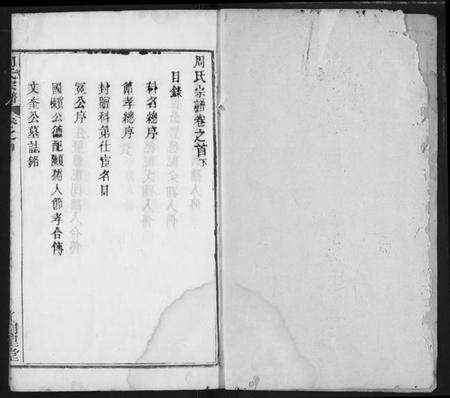 周氏宗譜卷之首下
目錄
科名總序
節孝總序
封贈科第仕宦名目
冕公序
國賴公德配顏孺人節孝合傳
文奎公墓誌銘